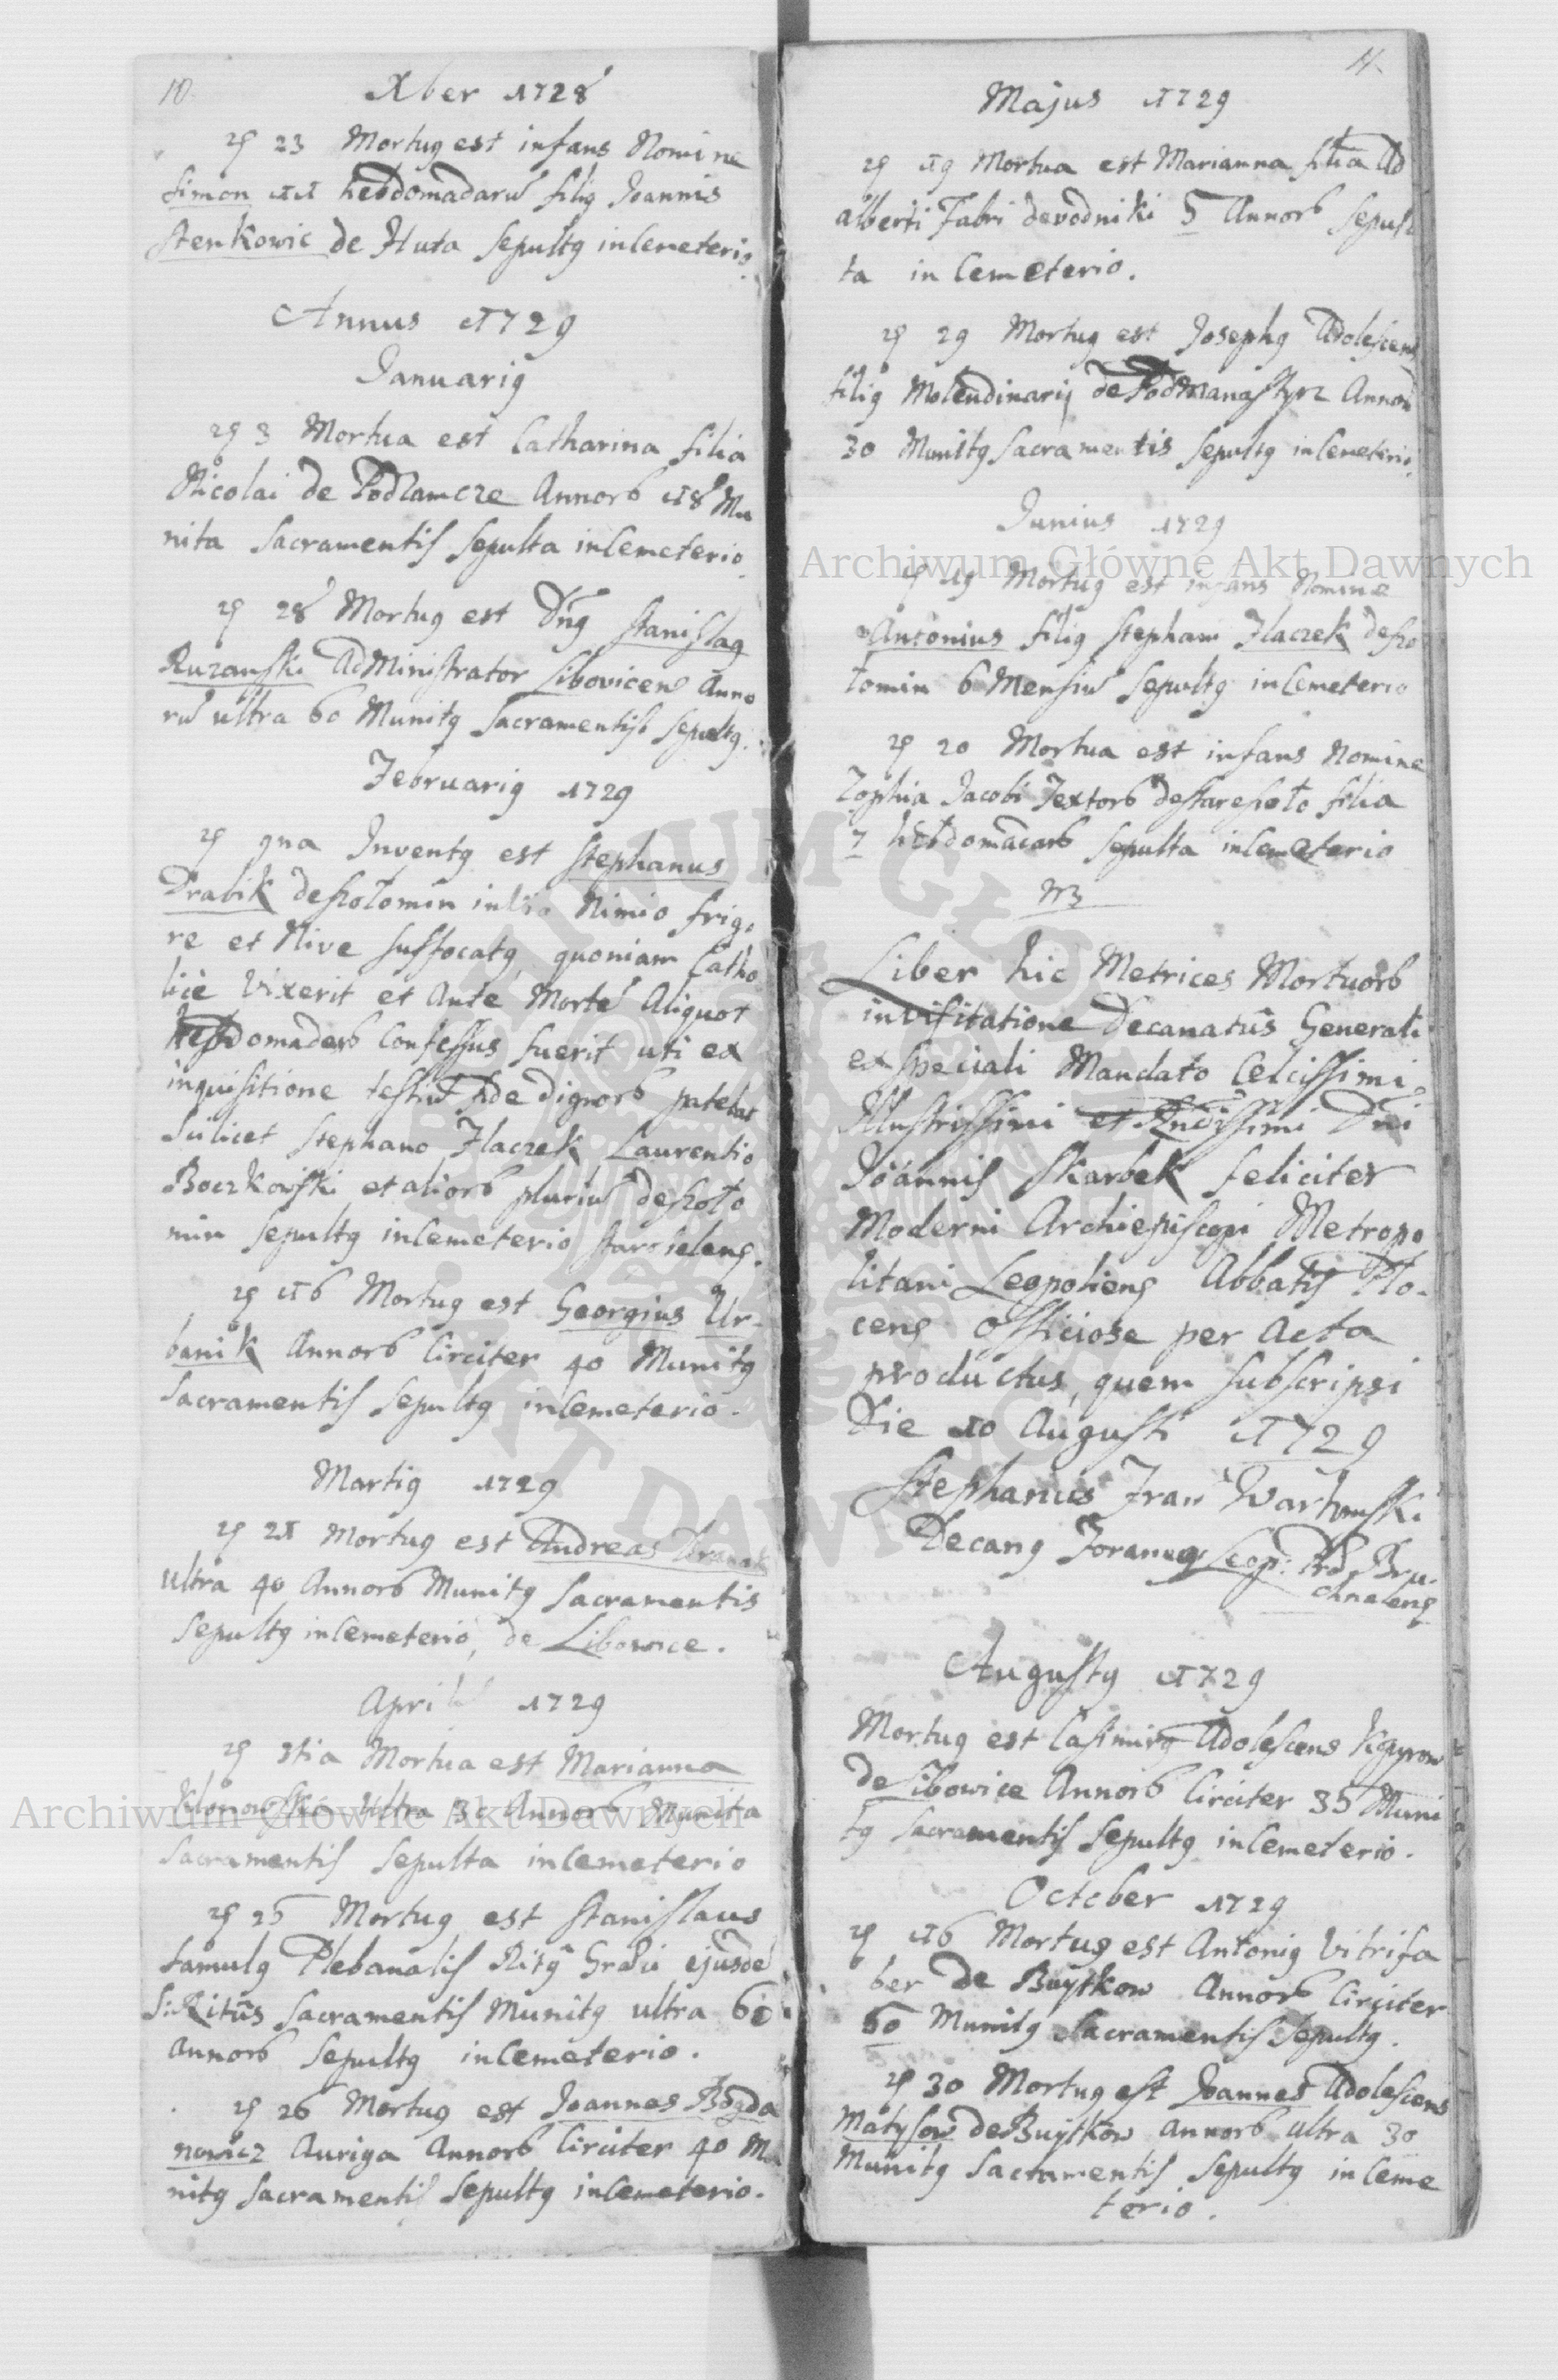 10.
Xber 1728
23 Mortug est infans Nomine
Simon 11 hebdomadarũ filig Joannis
Stenkowic de Huta Sepultg in Cemeterio.
Annus 1729
Januarig
3 Mortua est Catharina filia
Nicolai de Podzamcze Annorb 18 Mu
nita Sacramentis Sepulta in Cemeterio.
28 Mortug est Dñg Stanislag
Ruzanski AdMinistrator Libovicens Anno
rũ ultra 60 Munitg Sacramentis Sepultg.
Februarig 1729
9na Inventg est Stephanus
Drabik de Zołomin in Nimio frigo
re et Nive Suffocatg, quoniam Catho
licè Vixerit et Ante Mortẽ Aliquot
hebdomadarb Confessus fuerit uti ex
inquisitione testiũ fide dignorb patebat
Scilicet Stephano Haczek Laurentio
Boczkowski et aliorb pluriũ de Zoło
min Sepultg in Cemeterio Staroseleng.
16 Mortug est Georgius Ur-
banik Annorb Circiter 40 Munitg
Sacramentis Sepultg in Cemeterio.
Martig 1729
21 Mortug est Andreas
ultra 40 Annorb Munitg Sacramentis
Sepultg in Cemeterio, de Libowice.
April 1729
3tia Mortua est Marianna
Klonowska ultra 30 Annorb Munita
Sacramentis Sepulta in Cemeterio
25 Mortug est Stanislaus
famulg Plebanalis Ritg Græci ejusdẽ
S: Ritûs Sacramentis Munitg ultra 60
Annorb Sepultg in Cemeterio.
26 Mortug est Joannes Bogda
nowicz Auriga Annorb Circiter 40 Mu
nitg Sacramentis Sepultg in Cemeterio.
11.
Majus 1729
19 Mortua est Marianna filia Ad
alberti Fabri de Vodniki 5 Annorb Sepul
ta in Cemeterio.
29 Mortug est Josephg Adolescens
filig Molendinarij de PodManastyrz Annorũ
30 Munitg Sacramentis Sepultg in Cemeterio.
Junius 1729
19 Mortug est infans Nomine
Antonius filig Stephani Haczek de Zo
łomin 6 Mensiũ Sepultg in Cemeterio
20 Mortua est infans Nomine
Zophia Jacobi Textorb de Staresioło filia
7 hebdomadarb Sepulta in Cemeterio
Liber hic Metrices Mortuorb
in Visitatione Decanatûs Generali
ex speciali Mandato Celcissimi
Illustrissimi et Rndissimi Dñi
Joannis Skarbek feliciter
Moderni Archiepiscopi Metropo
litani Leopolieng Abbatis Plo-
ceng officiose per Acta
productus, quem Subscripsi
Die 10 Augusti 1729
Stephanus Fran Warhonski
Decang Foraneg Leop: Prd. Bru
chnaleng
Augustg 1729
Mortug est Casimirg Adolescens
de Libowice Annorb Circiter 35 Muni
tg Sacramentis Sepultg in Cemeterio.
October 1729
16 Mortug est Antonig Vitrifa
ber de Buytkow Annorb Circiter
60 Munitg Sacramentis Sepultg.
30 Mortug est Joannes Adolescens
Matysow de Buytkow Annorb ultra 30
Munitg Sacramentis Sepultg in Ceme
terio.
Archiwum Główne Akt Dawnych
Archiwum Główne Akt Dawnych
ARCHIWUM GŁÓWNE AKT DAWNYCH